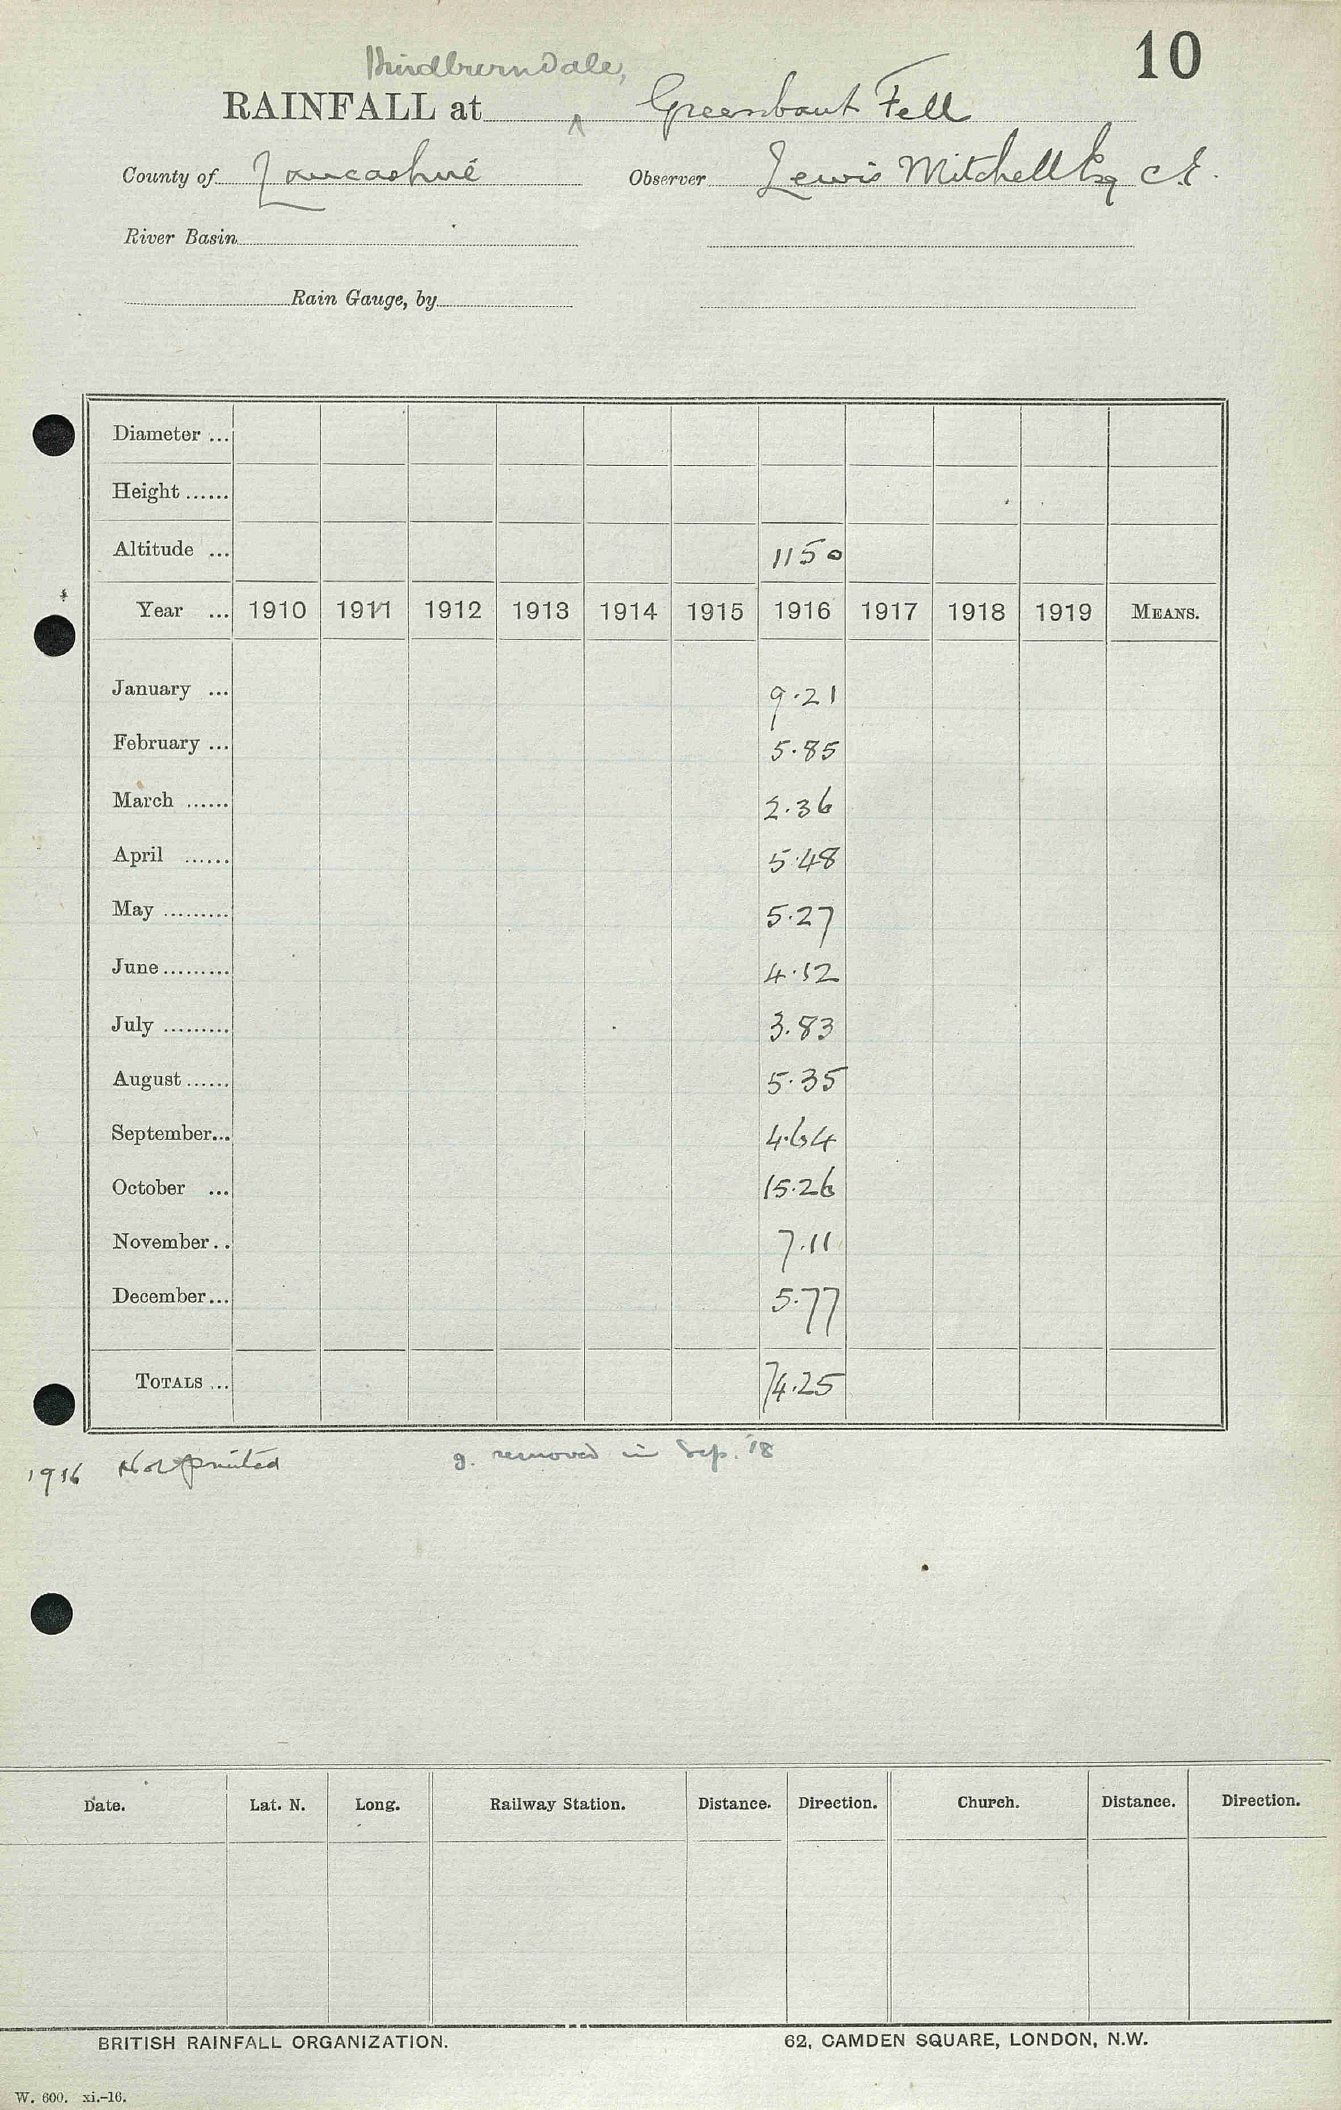 10
Hindburndale,
RAINFALL at Greenbank Fell
County of Lancashire Observer Lewis Mitchell Esq C.E.
River Basin
Rain Gauge, by
Diameter ...
Height ......
Altitude ... 1150
Year ... 1910 1911 1912 1913 1914 1915 1916 1917 1918 1919 MEANS.
January ... 9.21
February ... 5.85
March ...... 2.36
April ...... 5.48
May ......... 5.27
June ......... 4.12
July ......... 3.83
August ...... 5.35
September... 4.64
October ... 15.26
November.. 7.11
December... 5.77
TOTALS ... 74.25
1916 Not printed g. removed in Sep. '18
Date. Lat. N. Long. Railway Station. Distance. Direction. Church. Distance. Direction.
BRITISH RAINFALL ORGANIZATION. 62, CAMDEN SQUARE, LONDON, N.W.
W. 600. xi.-16.